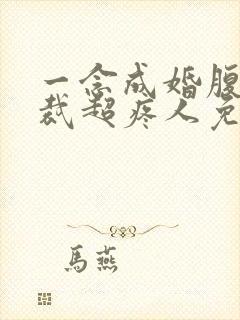 一念成婚腹
裁超疼人免
馬燕